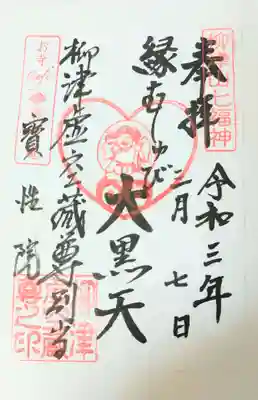 奉拝
令和三年
三月七日
縁むすび
大黒天
柳津虚空蔵尊別当
寳性院
柳津山七福神
お寺